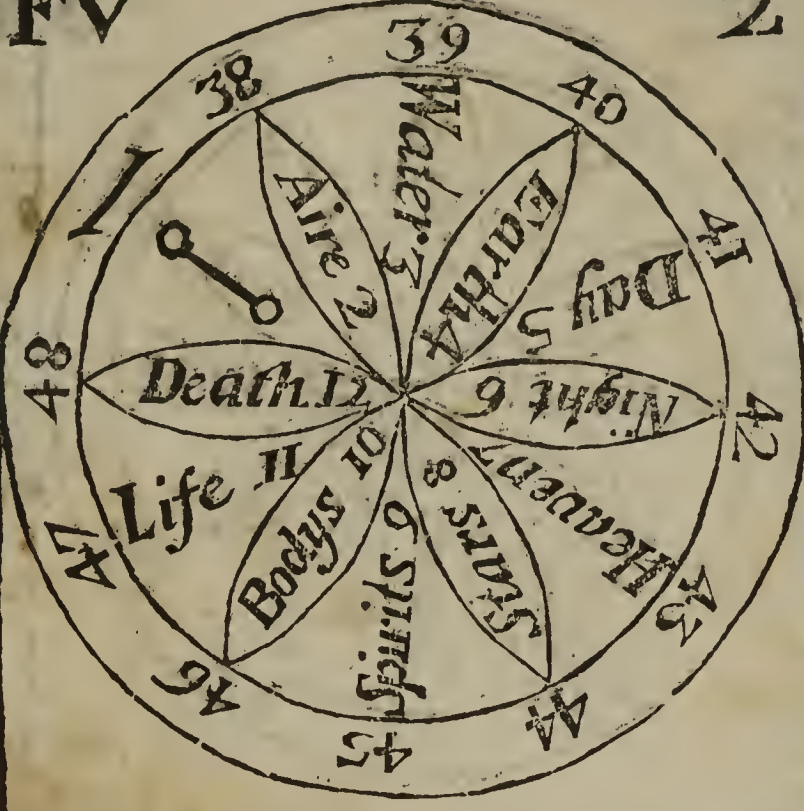 FV 2
I
38
39
40
41
42
43
44
45
46
47
48
Aire 2
Water 3
Earth 4
Day 5
Night 6
Heaven 7
Stars 8
Spirits 9
Bodys 10
Life 11
Death 12